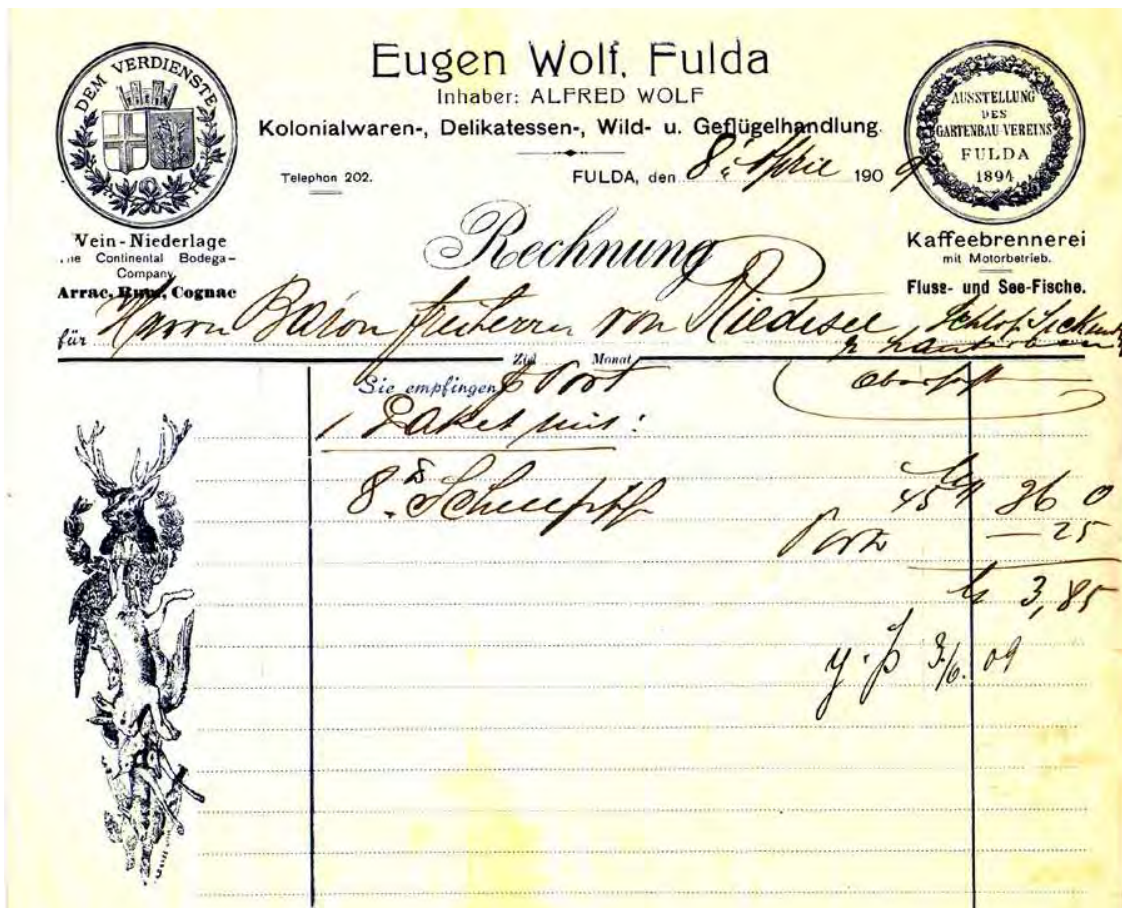 Eugen Wolf, Fulda
Inhaber: ALFRED WOLF
Kolonialwaren-, Delikatessen-, Wild- u. Geflügelhandlung.
DEM VERDIENSTE
AUSSTELLUNG
DES
GARTENBAU-VEREINS
FULDA
1894
Telephon 202.
FULDA, den 8. April 1909
Vein-Niederlage
Continental Bodega-
Company.
Arrac, Rum, Cognac
Rechnung
Kaffeebrennerei
mit Motorbetrieb.
Fluss- und See-Fische.
für Herrn Baron freiherrn von Riedesel, Schloß
Ziel Monat
Sie empfingen p Post
1 Paket mit:
8 45 36 0
Porto — 25
M 3,85
09